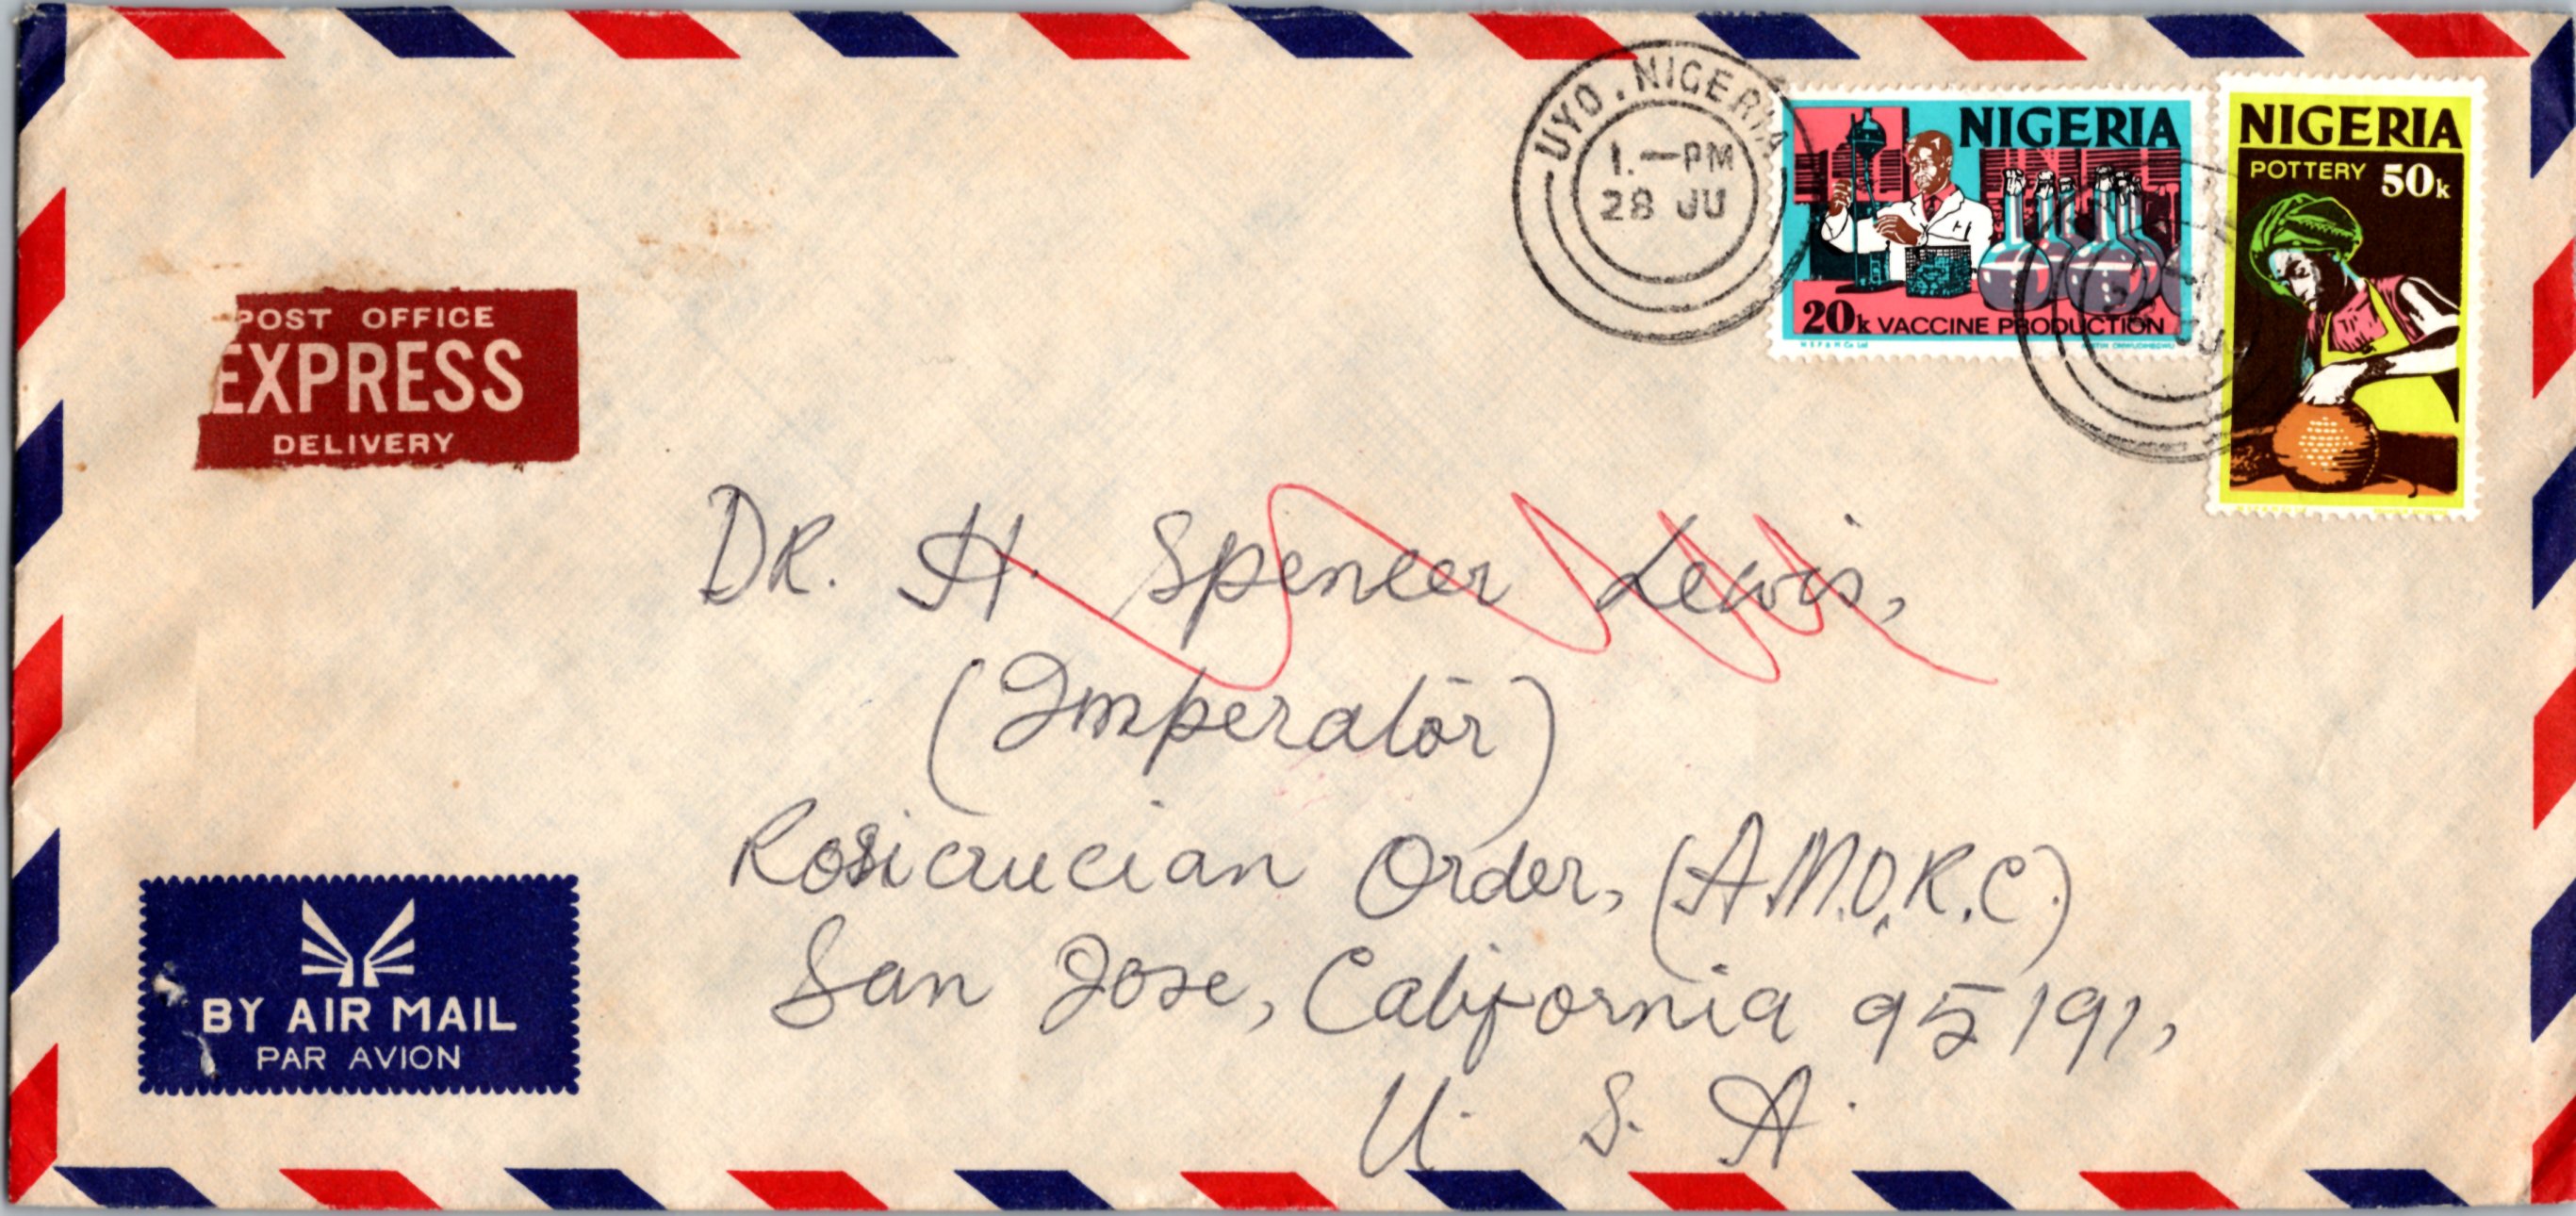 UYO. NIGERIA
1.—PM
28 JU
NIGERIA
20k VACCINE PRODUCTION
NIGERIA
POTTERY 50k
POST OFFICE
EXPRESS
DELIVERY
DR. H. Spencer Lewis,
(Imperator)
Rosicrucian Order, (A.M.O.R.C.)
San Jose, California 95191,
U. S. A.
BY AIR MAIL
PAR AVION